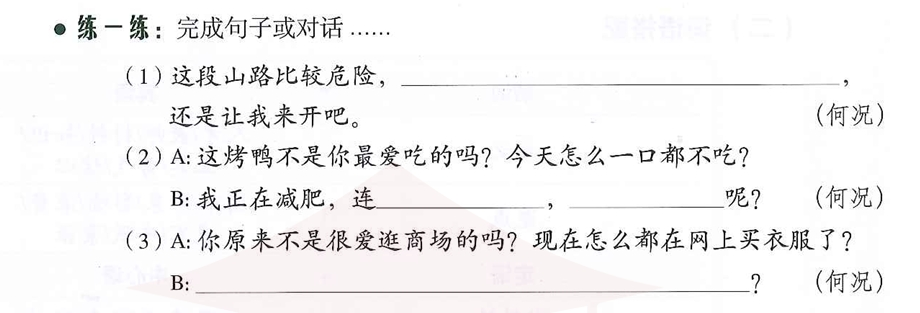 ● 练一练：完成句子或对话……
（1）这段山路比较危险，____________________，
还是让我来开吧。 （何况）
（2）A: 这烤鸭不是你最爱吃的吗？今天怎么一口都不吃？
B: 我正在减肥，连__________，__________呢？ （何况）
（3）A: 你原来不是很爱逛商场的吗？现在怎么都在网上买衣服了？
B: ______________________________？ （何况）